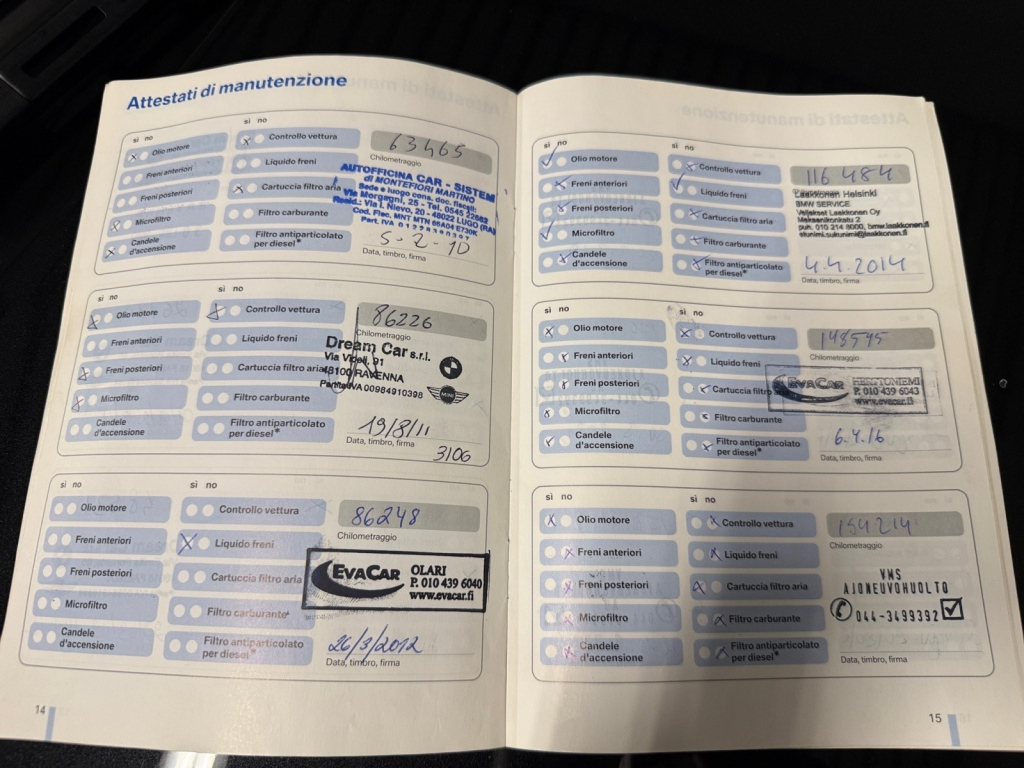 Attestati di manutenzione
sì no sì no
Olio motore
Freni anteriori
Freni posteriori
Microfiltro
Candele
d'accensione
Controllo vettura
Liquido freni
Cartuccia filtro aria
Filtro carburante
Filtro antiparticolato
per diesel*
63465
Chilometraggio
AUTOFFICINA CAR - SISTEM
di MONTEFIORI MARTINO
Sede e luogo cons. doc. fiscali:
Via Morgagni, 25 - Tel. 0545 22582
Resid.: Via I. Nievo, 20 - 48022 LUGO (RA)
Cod. Fisc. MNT MTN
Part. IVA
5-2-10
Data, timbro, firma
sì no sì no
Olio motore
Freni anteriori
Freni posteriori
Microfiltro
Candele
d'accensione
Controllo vettura
Liquido freni
Cartuccia filtro aria
Filtro carburante
Filtro antiparticolato
per diesel*
86226
Chilometraggio
Dream Car s.r.l.
Via Vicoli, 91
48100 RAVENNA
Partita IVA 00984910398
MINI
19/8/11
Data, timbro, firma
3106
sì no sì no
Olio motore
Freni anteriori
Freni posteriori
Microfiltro
Candele
d'accensione
Controllo vettura
Liquido freni
Cartuccia filtro aria
Filtro carburante
Filtro antiparticolato
per diesel*
86248
Chilometraggio
EVACAR OLARI
P. 010 439 6040
www.evacar.fi
26/3/2012
Data, timbro, firma
14
sì no sì no
Olio motore
Freni anteriori
Freni posteriori
Microfiltro
Candele
d'accensione
Controllo vettura
Liquido freni
Cartuccia filtro aria
Filtro carburante
Filtro antiparticolato
per diesel*
116 484
Laakkonen Helsinki
BMW SERVICE
Veljekset Laakkonen Oy
Mekaanikonkatu 2
puh. 010 214 8000, bmw.laakkonen.fi
etunimi.sukunimi@laakkonen.fi
4.4.2014
Data, timbro, firma
sì no sì no
Olio motore
Freni anteriori
Freni posteriori
Microfiltro
Candele
d'accensione
Controllo vettura
Liquido freni
Cartuccia filtro
Filtro carburante
Filtro antiparticolato
per diesel*
148545
Chilometraggio
EVACAR HERTTONIEMI
P. 010 439 6043
www.evacar.fi
6.4.16
Data, timbro, firma
sì no sì no
Olio motore
Freni anteriori
Freni posteriori
Microfiltro
Candele
d'accensione
Controllo vettura
Liquido freni
Cartuccia filtro aria
Filtro carburante
Filtro antiparticolato
per diesel*
154214
Chilometraggio
VMS
AJONEUVOHUOLTO
044-3499392
Data, timbro, firma
15